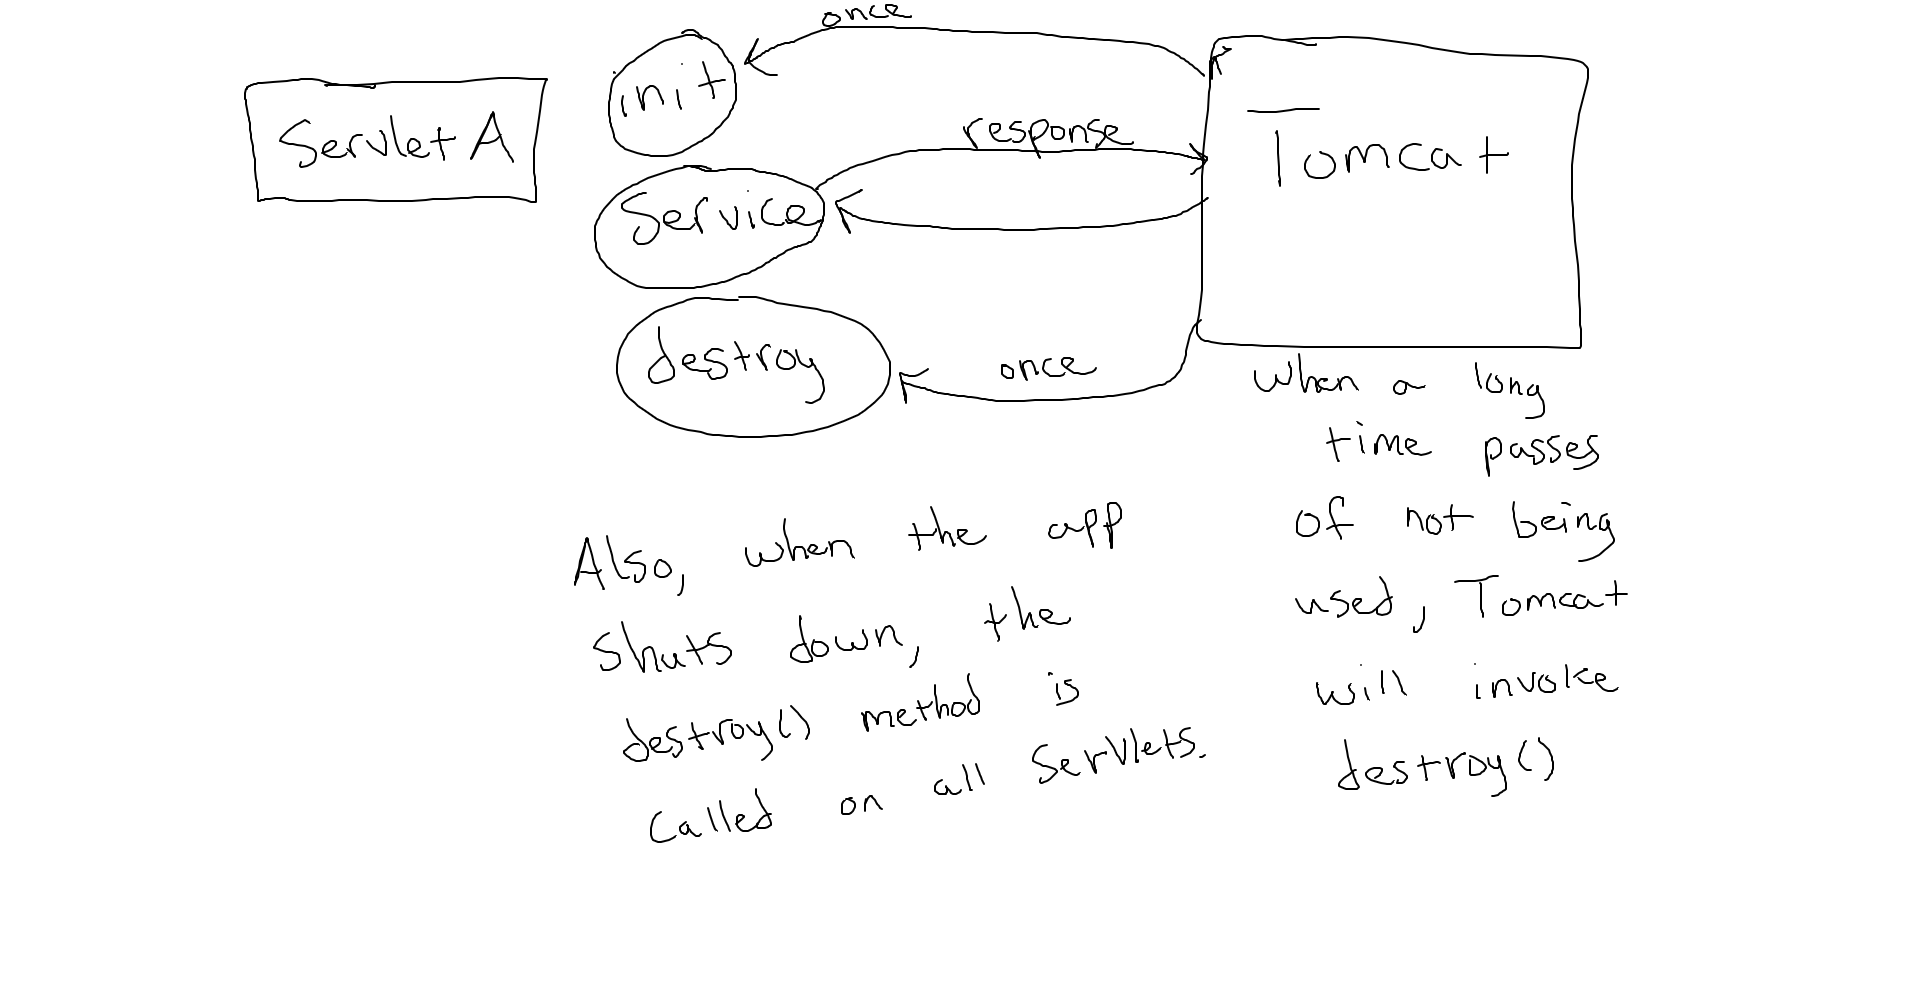 once
init
Servlet A
response
Tomcat
Service
destroy
once
When a long
time passes
of not being
used, Tomcat
will invoke
destroy()
Also, when the app
shuts down, the
destroy() method is
called on all Servlets.